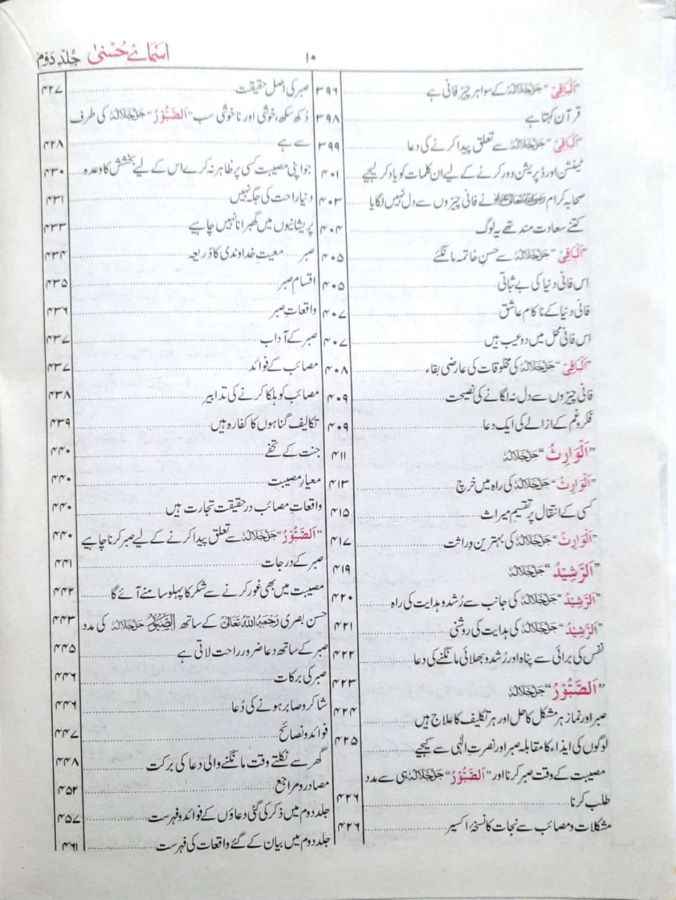 اسمائے حُسنیٰ جلد دَوم
۱۰
”اَلْبَاقِیْ“ جَلَّ جَلَالُہٗ کے سوا ہر چیز فانی ہے ۳۹۶
قرآن کہتا ہے ۳۹۸
”اَلْبَاقِیْ“ جَلَّ جَلَالُہٗ سے تعلق پیدا کرنے کی دعا ۳۹۹
ٹینشن اور ڈپریشن دور کرنے کے لیے ان کلمات کو یاد کر لیجیے ۴۰۱
صحابہ کرام نے فانی چیزوں سے دل نہیں لگایا ۴۰۳
کتنے سعادت مند تھے یہ لوگ ۴۰۴
”اَلْبَاقِیْ“ جَلَّ جَلَالُہٗ سے حسنِ خاتمہ مانگئے ۴۰۵
اس فانی دنیا کی بے ثباتی ۴۰۵
فانی دنیا کے ناکام عاشق ۴۰۷
اس فانی محل میں دو عیب ہیں ۴۰۷
”اَلْبَاقِیْ“ جَلَّ جَلَالُہٗ کی مخلوقات کی عارضی بقاء ۴۰۸
فانی چیزوں سے دل نہ لگانے کی نصیحت ۴۰۹
فکر و غم کے ازالے کی ایک دعا ۴۰۹
”اَلْوَارِثُ“ جَلَّ جَلَالُہٗ ۴۱۱
”اَلْوَارِثُ“ جَلَّ جَلَالُہٗ کی راہ میں خرچ ۴۱۳
کسی کے انتقال پر تقسیمِ میراث ۴۱۵
”اَلْوَارِثُ“ جَلَّ جَلَالُہٗ کی بہترین وراثت ۴۱۷
”اَلرَّشِیْدُ“ جَلَّ جَلَالُہٗ ۴۱۹
”اَلرَّشِیْدُ“ جَلَّ جَلَالُہٗ کی جانب سے رُشد و ہدایت کی راہ ۴۲۰
”اَلرَّشِیْدُ“ جَلَّ جَلَالُہٗ کی ہدایت کی روشنی ۴۲۱
نفس کی برائی سے پناہ اور رُشد و بھلائی مانگنے کی دعا ۴۲۲
”اَلصَّبُوْرُ“ جَلَّ جَلَالُہٗ ۴۲۳
صبر اور نماز ہر مشکل کا حل اور ہر تکلیف کا علاج ہیں ۴۲۴
لوگوں کی ایذاء کا مقابلہ صبر اور نصرتِ الٰہی سے کیجیے ۴۲۵
مصیبت کے وقت صبر کرنا اور ”اَلصَّبُوْرُ“ جَلَّ جَلَالُہٗ ہی سے مدد
طلب کرنا ۴۲۶
مشکلات و مصائب سے نجات کا نسخۂ اکسیر ۴۲۶
صبر کی اصل حقیقت ۴۲۷
دُکھ سکھ، خوشی اور ناخوشی سب ”اَلصَّبُوْرُ“ جَلَّ جَلَالُہٗ کی طرف
سے ہے ۴۲۸
جو اپنی مصیبت کسی پر ظاہر نہ کرے اس کے لیے بخشش کا وعدہ ۴۳۰
دنیا راحت کی جگہ نہیں ۴۳۱
پریشانیوں میں گھبرانا نہیں چاہیے ۴۳۳
صبر معیتِ خداوندی کا ذریعہ ۴۳۴
اقسامِ صبر ۴۳۵
واقعاتِ صبر ۴۳۶
صبر کے آداب ۴۳۷
مصائب کے فوائد ۴۳۷
مصائب کو ہلکا کرنے کی تدابیر ۴۳۸
تکالیف گناہوں کا کفارہ ہیں ۴۳۹
جنت کے تحفے ۴۴۰
معیارِ مصیبت ۴۴۰
واقعاتِ مصائب درحقیقت تجارت ہیں ۴۴۰
”اَلصَّبُوْرُ“ جَلَّ جَلَالُہٗ سے تعلق پیدا کرنے کے لیے صبر کرنا چاہیے ۴۴۰
صبر کے درجات ۴۴۱
مصیبت میں بھی غور کرنے سے شکر کا پہلو سامنے آئے گا ۴۴۲
حسن بصری رَحِمَہُ اللہُ تَعَالٰی کے ساتھ اَلصَّبُوْرُ جَلَّ جَلَالُہٗ کی مدد ۴۴۳
صبر کے ساتھ دعا ضرور راحت لاتی ہے ۴۴۵
صبر کی برکات ۴۴۶
شاکر و صابر ہونے کی دُعا
فوائد و نصائح ۴۴۷
گھر سے نکلتے وقت مانگنے والی دعا کی برکت ۴۴۸
مصادر و مراجع ۴۵۲
جلد دوم میں ذکر کی گئی دعاؤں کے فوائد و فہرست ۴۵۷
جلد دوم میں بیان کے گئے واقعات کی فہرست ۴۶۱